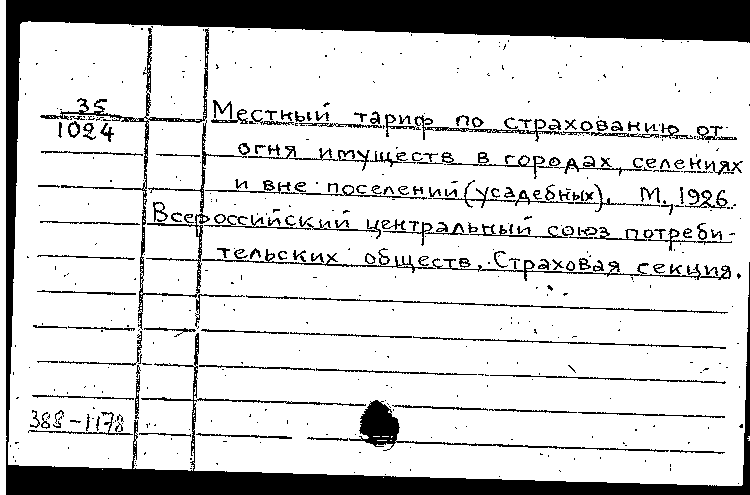 35
1024
Местный тариф по страхованию от
огня имуществ в городах, селениях
и вне поселений (усадебных). М., 1926.
Всероссийский центральный союз потреби-
тельских обществ. Страховая секция.
388-1178